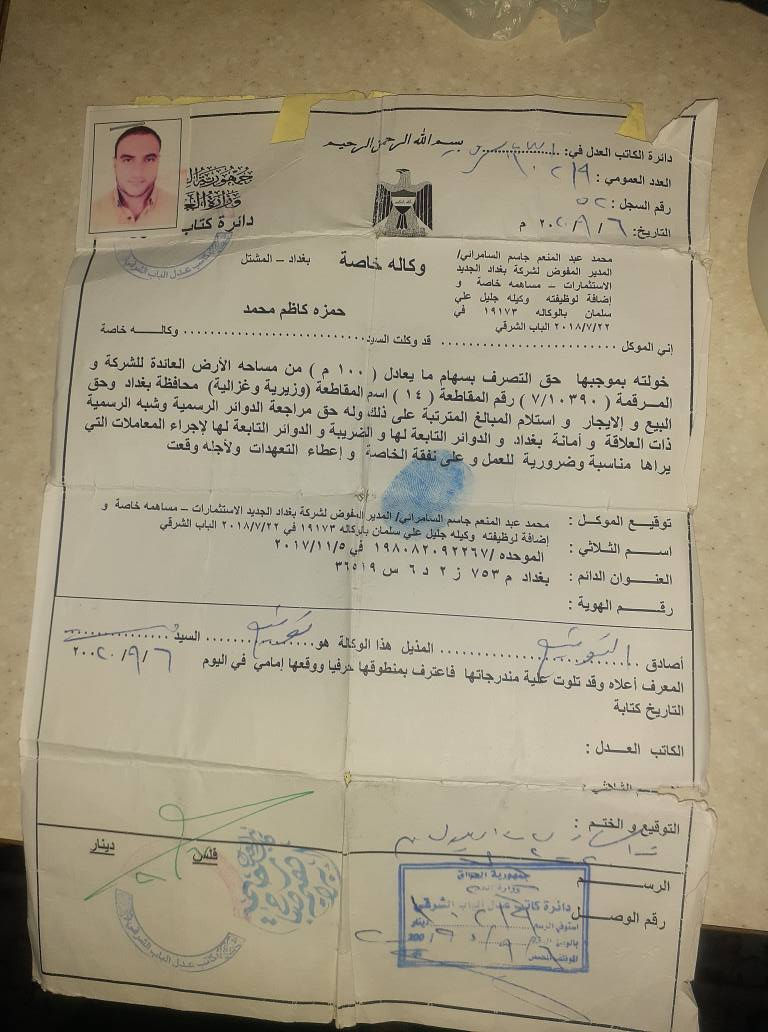 بسم الله الرحمن الرحيم
دائرة الكاتب العدل في:
العدد العمومي :
رقم السجل : ٥٢
التاريخ: ٢٠٢٠/٩/٦ م
جمهورية
وزارة
دائرة كتاب
وكاله خاصة
بغداد – المشتل
محمد عبد المنعم جاسم السامرائي/
المدير المفوض لشركة بغداد الجديد
الاستثمارات – مساهمه خاصة و
إضافة لوظيفته وكيله جليل علي
سلمان بالوكاله ١٩١٧٣ في
٢٠١٨/٧/٢٢ الباب الشرقي
حمزه كاظم محمد
إني الموكل ........ قد وكلت السيد ........ وكالـــه خاصة
خولته بموجبها حق التصرف بسهام ما يعادل ( ١٠٠ م ) من مساحه الأرض العائدة للشركة و
المـرقمة ( ٧/١٠٣٩٠ ) رقم المقاطعة ( ١٤ ) اسم المقاطعة (وزيرية وغزالية) محافظة بغداد وحق
البيع و الإيجار و استلام المبالغ المترتبة على ذلك وله حق مراجعة الدوائر الرسمية وشبه الرسمية
ذات العلاقة و أمانة بغداد و الدوائر التابعة لها و الضريبة و الدوائر التابعة لها لإجراء المعاملات التي
يراها مناسبة وضرورية للعمل و على نفقة الخاصة و إعطاء التعهدات ولأجله وقعت
توقيع الموكل :
اسـم الثلاثي : محمد عبد المنعم جاسم السامرائي/ المدير المفوض لشركة بغداد الجديد الاستثمارات – مساهمه خاصة و
إضافة لوظيفته وكيله جليل علي سلمان بالوكاله ١٩١٧٣ في ٢٠١٨/٧/٢٢ الباب الشرقي
الموحده /١٩٨٠٨٢٠٩٢٢٦٧ في ٢٠١٧/١١/٥
العنـوان الدائم : بغداد م ٧٥٣ ز ٢ د ٦ س ٣٦٥١٩
رقـم الهوية :
أصادق ........ المذيل هذا الوكالة هو ........ السيد ........
المعرف أعلاه وقد تلوت علية مندرجاتها فاعترف بمنطوقها حرفيا ووقعها إمامي في اليوم ٢٠٢٠/٩/٦
التاريخ كتابة
الكاتب العـدل :
التوقيع و الختم :
فلس
دينار
الرســـم
رقم الوصـل
جمهورية العراق
وزارة العدل
دائرة كاتب عدل الباب الشرقي